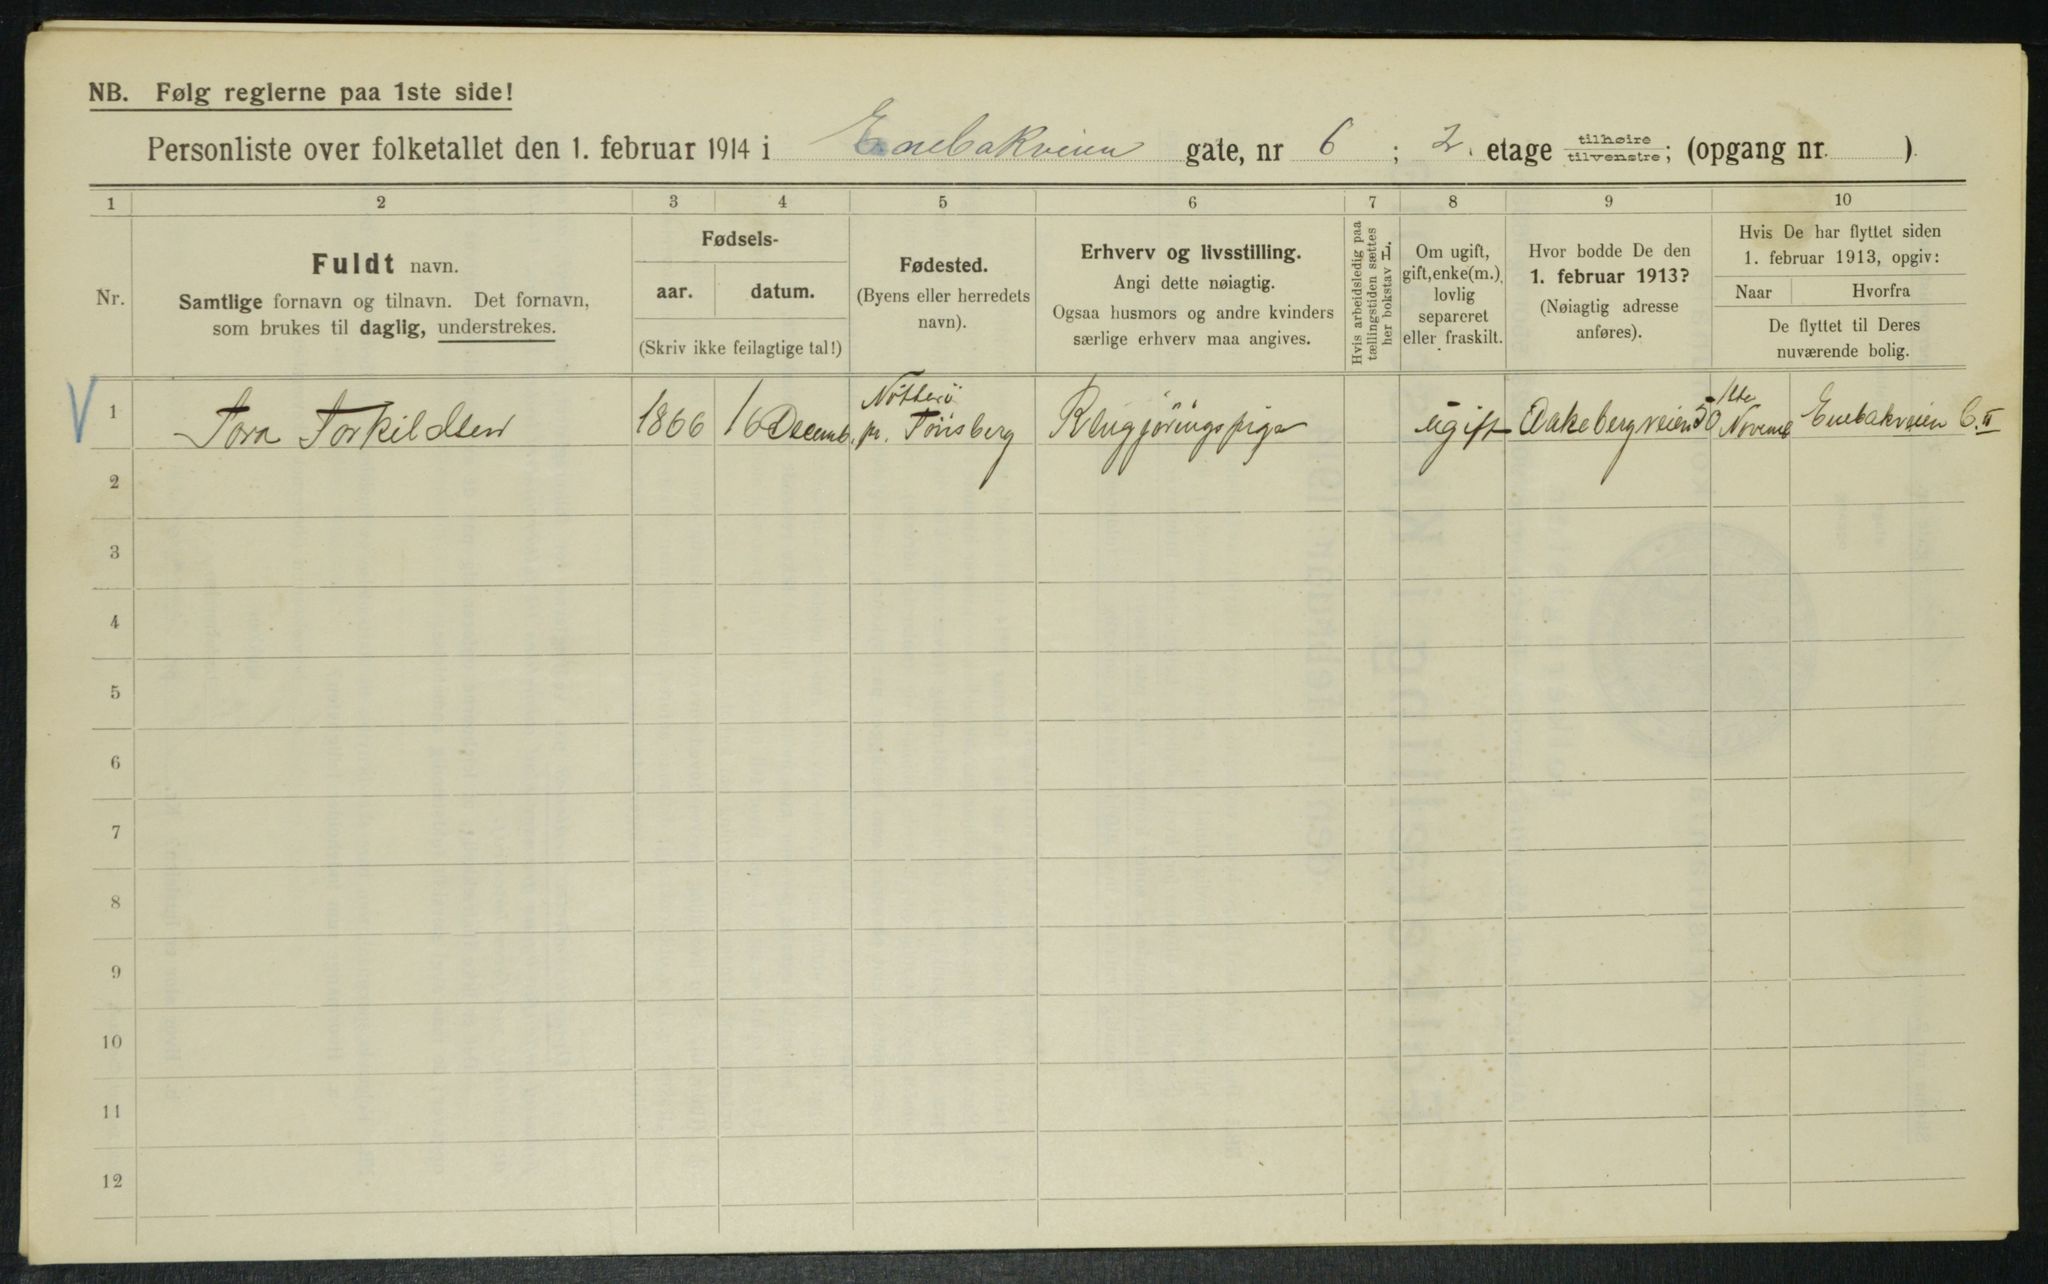 NB. Følg reglerne paa 1ste side!
Personliste over folketallet den 1. februar 1914 i Enebakveien gate, nr 6 ; 2. etage tilhøire/tilvenstre; (opgang nr. ).
1 2 3 4 5 6 7 8 9 10
Nr.
Fuldt navn.
Samtlige fornavn og tilnavn. Det fornavn,
som brukes til daglig, understrekes.
Fødsels-
aar. datum.
(Skriv ikke feilagtige tal!)
Fødested.
(Byens eller herredets
navn).
Erhverv og livsstilling.
Angi dette nøiagtig.
Ogsaa husmors og andre kvinders
særlige erhverv maa angives.
Hvis arbeidsledig paa
tællingstiden sættes
her bokstav L.
Om ugift,
gift, enke(m.),
lovlig
separeret
eller fraskilt.
Hvor bodde De den
1. februar 1913?
(Nøiagtig adresse
anføres).
Hvis De har flyttet siden
1. februar 1913, opgiv:
Naar Hvorfra
De flyttet til Deres
nuværende bolig.
V 1 Tora Torkildsen 1866 16 Decemb. Nötterö
pr. Tönsberg Rengjöringspige ugift Aakebergveien 50 1ste
Novemb Enebakveien 6. II
2
3
4
5
6
7
8
9
10
11
12